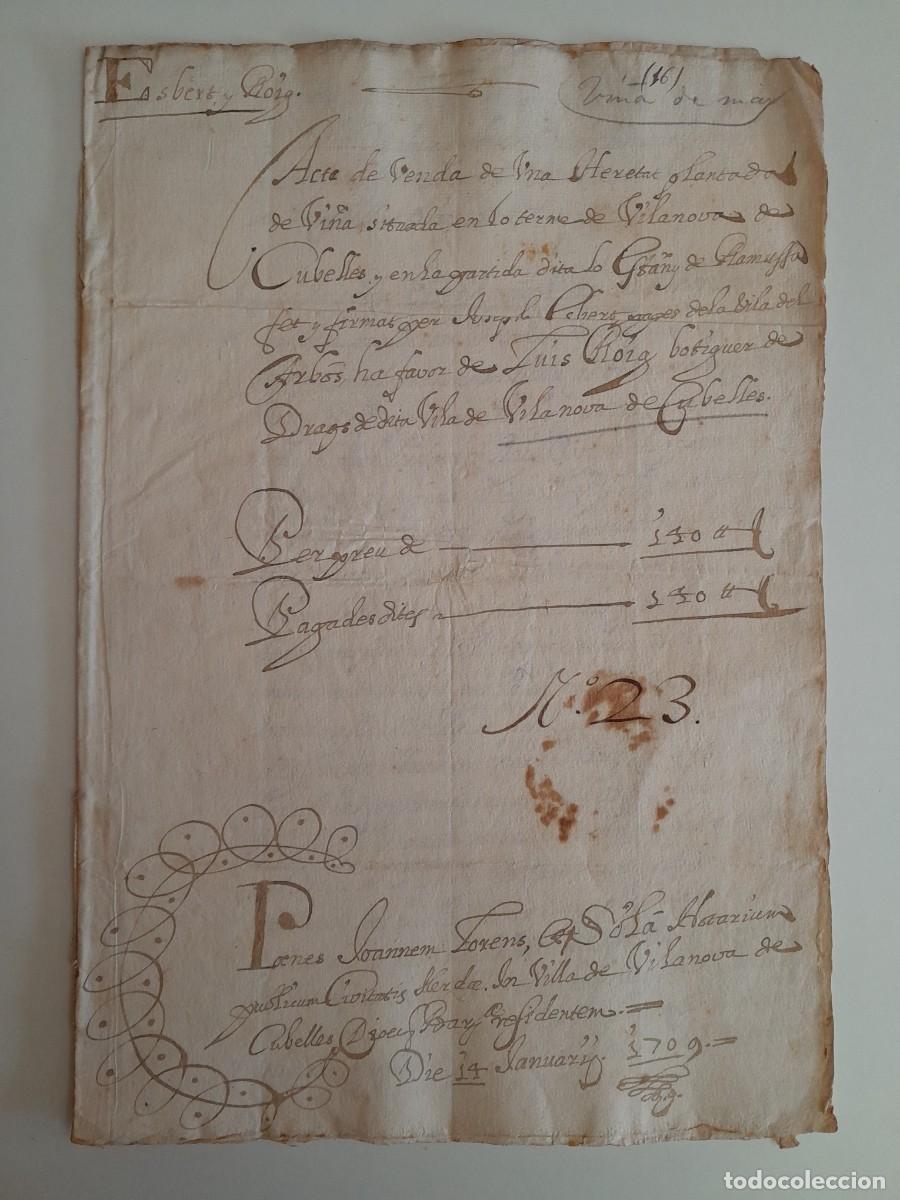 Esbert, y Roig.
(16)
Viña de mar
Acte de Venda de Vna Heretat plantada
de Viña, situada en lo terme de Vilanova de
Cubelles, y en la partida dita lo Estany de
fet y firmat per Joseph Esbert pages de la Vila del
Arbós, ha favor de Luis Roig botiguer de
Draps de dita Vila de Vilanova de Cubelles.
Per preu de 140 ₶
Pagades dites 140 ₶
N.º 23.
Pœnes Joannem Torens, et Solá Notarium
publicum Civitatis Ilerdæ. In Villa de Vilanova de
Cubelles, Diœc. Bar. Residentem.=
Die 14 Januarij. 1709.=
todocoleccion